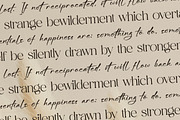 lost. If not reciprocated, it will flow back an
strange bewilderment which overta
entials of happiness are: something to do, someth
lf be silently drawn by the stronger
lost. If not reciprocated, it will flow back
strange bewilderment which overt
entials of happiness are: something to do, som
lf be silently drawn by the stronge